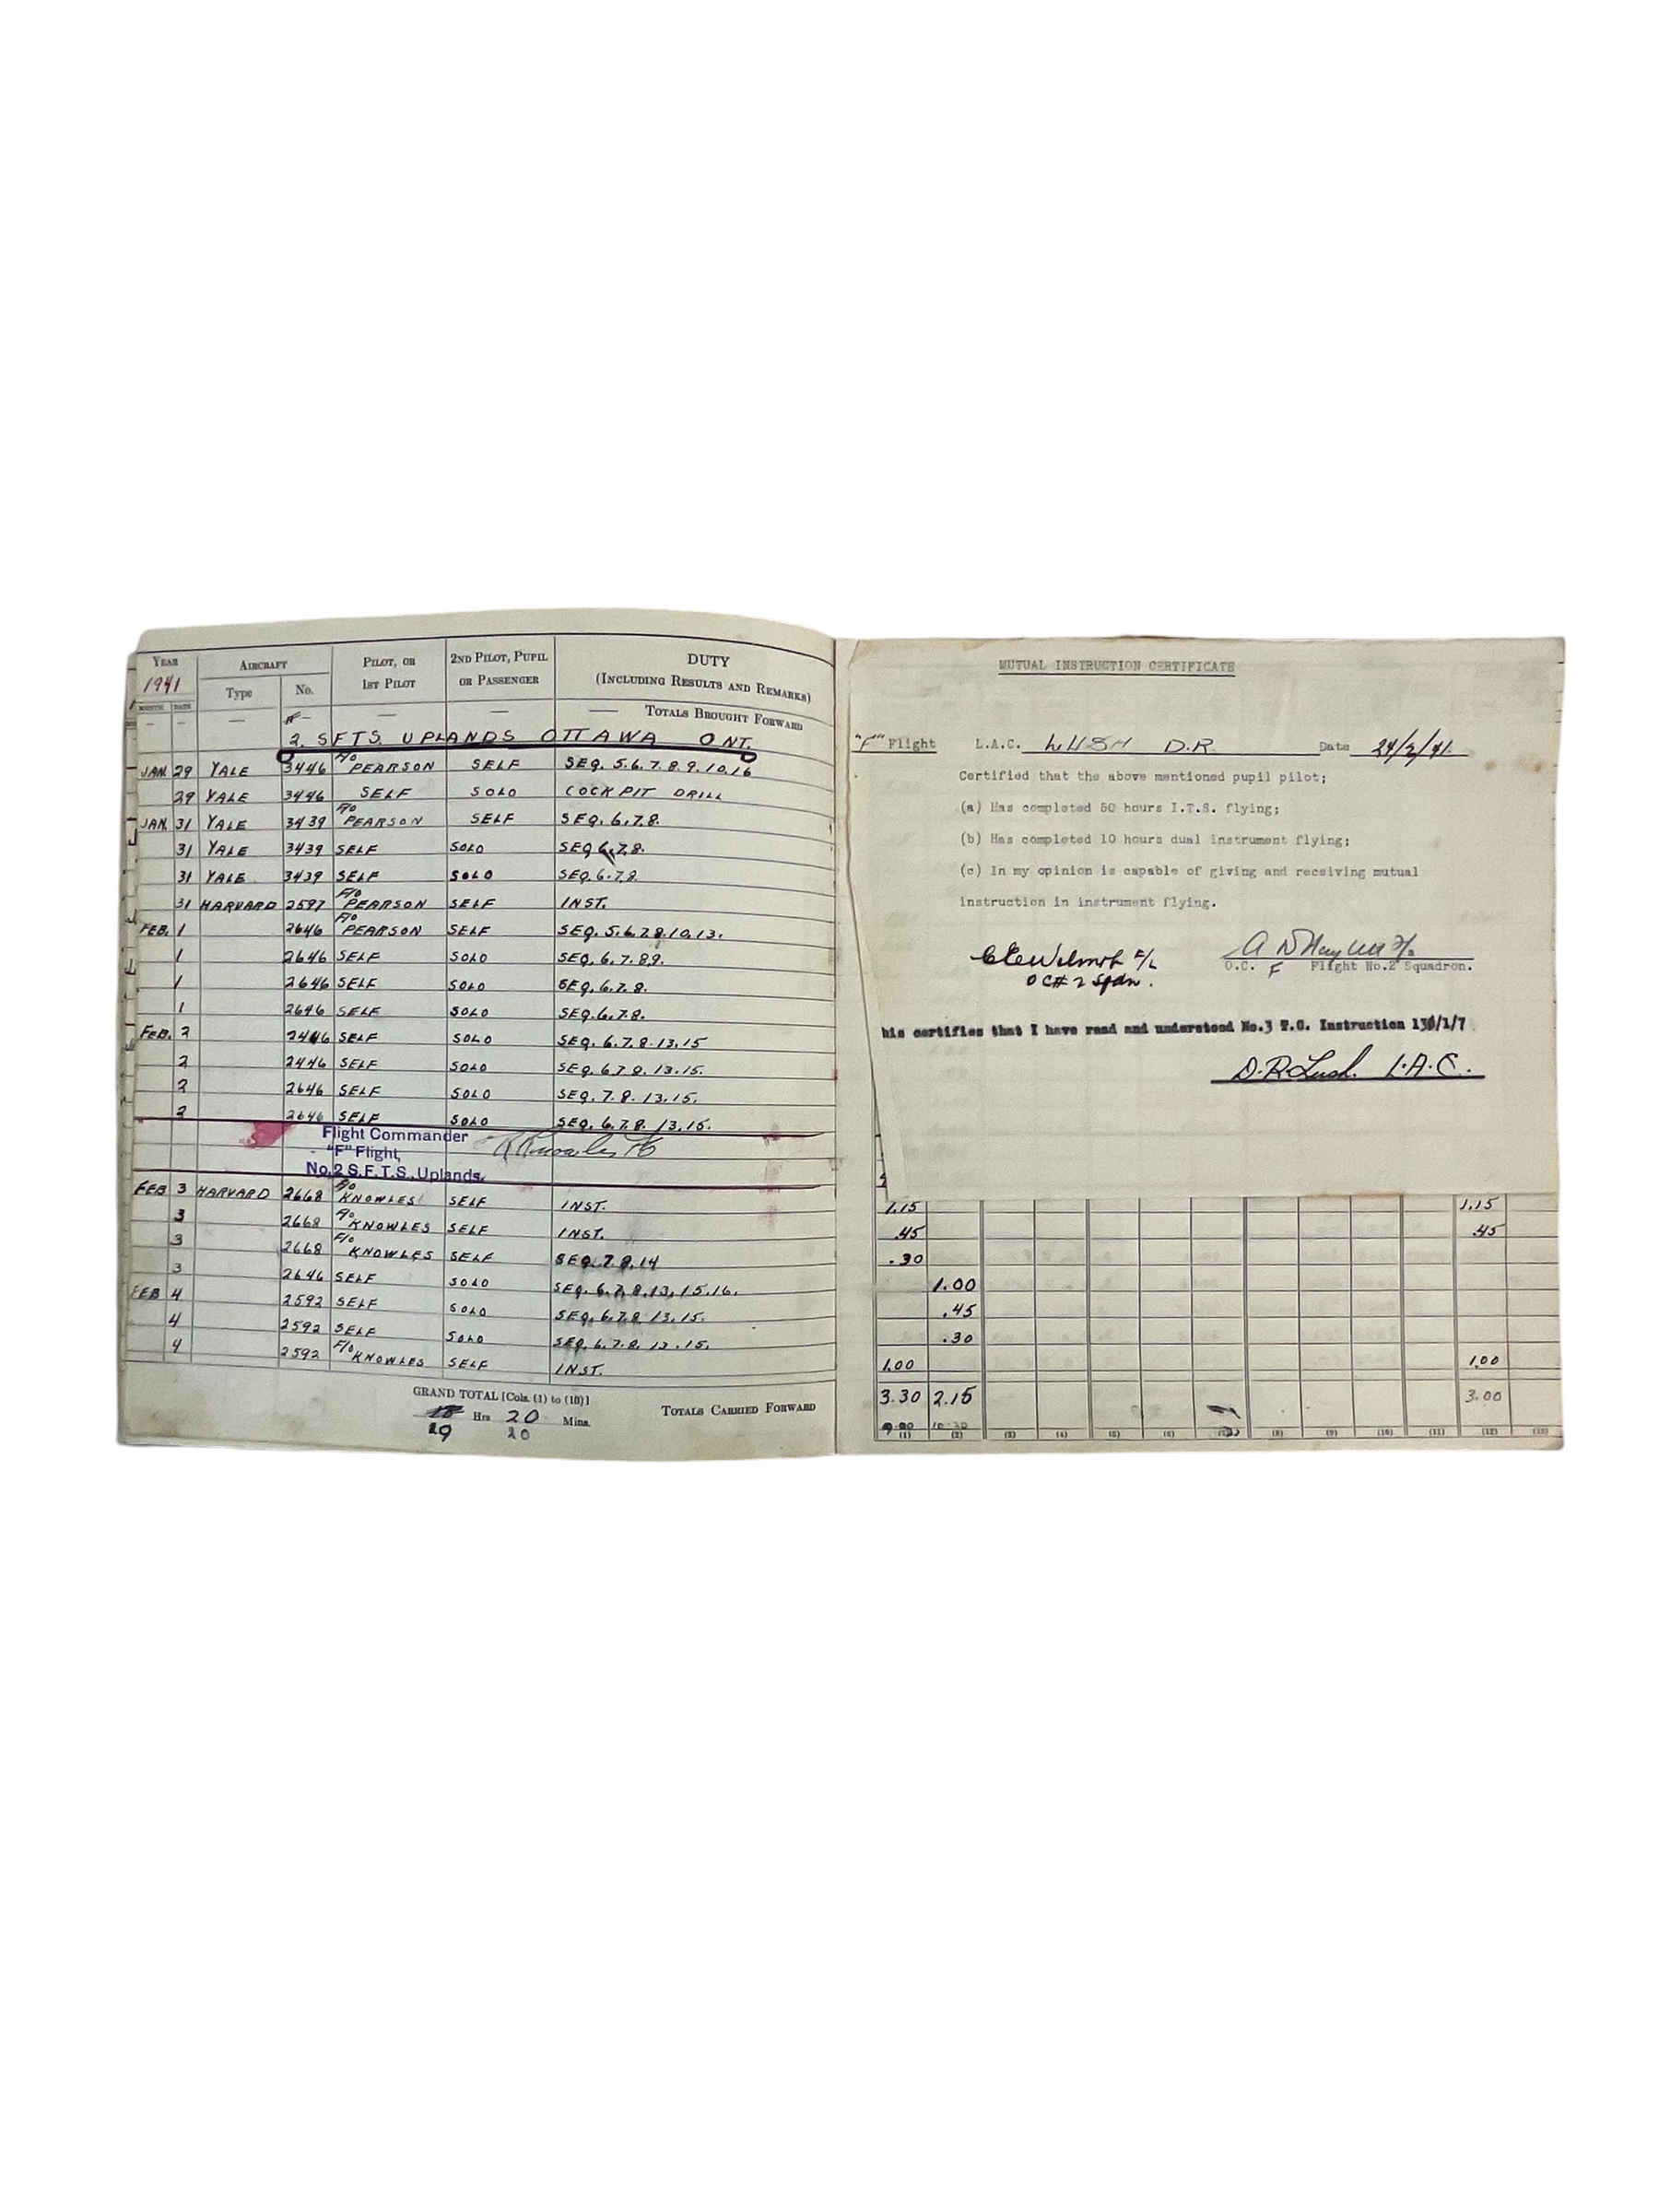 YEAR AIRCRAFT PILOT, OR 2ND PILOT, PUPIL DUTY
1941 Type No. 1ST PILOT OR PASSENGER (INCLUDING RESULTS AND REMARKS)
MONTH DATE
— — — — — — TOTALS BROUGHT FORWARD
2. SFTS. UPLANDS OTTAWA ONT.
JAN. 29 YALE 3446 F/O PEARSON SELF SEQ. 5.6.7.8.9.10.16
29 YALE 3446 SELF SOLO COCKPIT DRILL
JAN. 31 YALE 3439 F/O PEARSON SELF SEQ. 6.7.8.
31 YALE 3439 SELF SOLO SEQ 6.7.8.
31 YALE 3439 SELF SOLO SEQ. 6.7.8.
31 HARVARD 2597 F/O PEARSON SELF INST.
FEB. 1 2646 F/O PEARSON SELF SEQ. 5.6.7.8.10.13.
1 2646 SELF SOLO SEQ. 6.7.8.9.
1 2646 SELF SOLO SEQ. 6.7.8.
1 2646 SELF SOLO SEQ. 6.7.8.
FEB. 2 2446 SELF SOLO SEQ. 6.7.8.13.15
2 2446 SELF SOLO SEQ. 6.7.8.13.15.
2 2646 SELF SOLO SEQ. 7.8.13.15.
2 2646 SELF SOLO SEQ. 6.7.8.13.15.
Flight Commander
"F" Flight, R Knowles F/O
No. 2 S.F.T.S., Uplands.
FEB 3 HARVARD 2668 F/O KNOWLES SELF INST.
3 2668 F/O KNOWLES SELF INST.
3 2668 F/O KNOWLES SELF SEQ. 7.8.14
3 2646 SELF SOLO SEQ. 6.7.8.13.15.16.
FEB 4 2592 SELF SOLO SEQ. 6.7.8.13.15.
4 2592 SELF SOLO SEQ. 6.7.8.13.15.
4 2592 F/O KNOWLES SELF INST.
GRAND TOTAL [Cols. (1) to (10)]
18 Hrs 20 Mins. TOTALS CARRIED FORWARD
19 20
MUTUAL INSTRUCTION CERTIFICATE
"F" Flight L.A.C. LUSH D.R. Date 24/2/41.
Certified that the above mentioned pupil pilot;
(a) Has completed 50 hours I.T.S. flying;
(b) Has completed 10 hours dual instrument flying;
(c) In my opinion is capable of giving and receiving mutual
instruction in instrument flying.
CEWilmot F/L
OC# 2 Sqdn.
O.C. F Flight No.2 Squadron.
his certifies that I have read and understood No.3 T.C. Instruction 130/1/7
D.R.Lush. L.A.C.
1.15 1.15
.45 .45
.30
1.00
.45
.30
1.00 1.00
3.30 2.15 3.00
(1) (2) (3) (4) (5) (6) (8) (9) (10) (11) (12) (13)